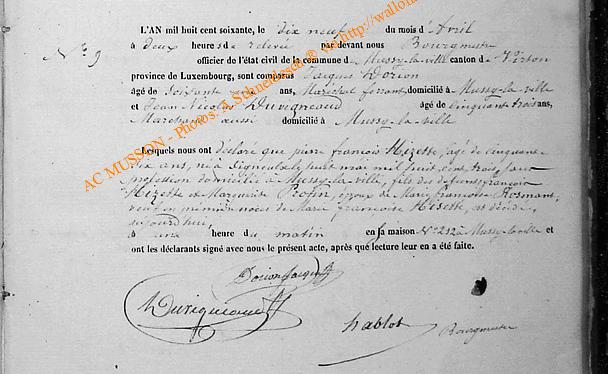 L'AN mil huit cent soixante, le dix neuf du mois d'Avril
N° 9
à deux heures de relevée par devant nous Bourgmestre
officier de l'état civil de la commune de Mussy-la-ville canton de Virton
province de Luxembourg, sont comparus Jacques Dorion
âgé de soixante ans, Maréchal ferrant domicilié à Mussy-la-ville
et Jean Nicolas Duvigneaud âgé de cinquante trois ans,
Marchand aussi domicilié à Mussy-la-ville
Lesquels nous ont déclaré que pierre francois Hizette, agé de cinquante
six ans, né à Signeulx le huit mai mil huit cent trois, sans
profession domicilié à Mussy-la-ville, fils des défunts francois
Hizette et Marguerite époux de Marie françoise Rosmant,
veuf en première noces de Marie françoise Hizette, est décédé
aujourd'hui,
à une heure du matin en sa maison N° 212 à Mussy-la-ville et
ont les déclarants signé avec nous le présent acte, après que lecture leur en a été faite.
Dorion Jacques
Duvigneaud
hablot Bourgmestre
AC MUSSON - Photos: T. Schneidesch @ http://wallo